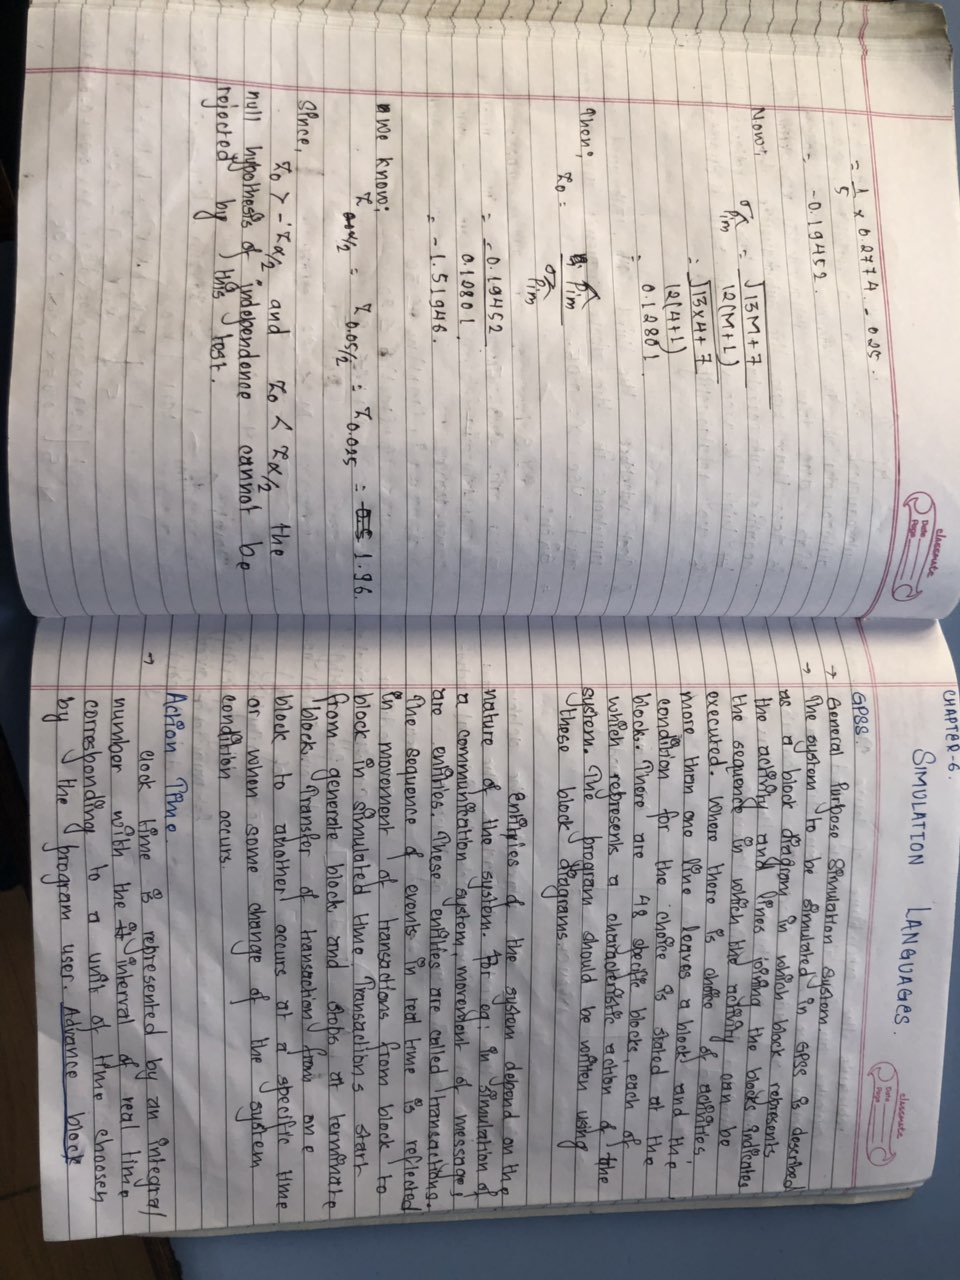 classmate
Date
Page
= 1/5 × 0.2774 - 0.25.
= -0.19452.
Now;
σ̂ρim = √13M+7 / 12(M+1)
= √13×4+7 / 12(4+1)
= 0.12801
Then;
Z₀ = ρ̂im / σ̂ρim
= -0.19452 / 0.12801.
= -1.51946.
We know;
Zα/2 = Z0.05/2 = Z0.025 = 1.96.
Since,
Z₀ > -Zα/2 and Z₀ < Zα/2 the
null hypothesis of independence cannot be
rejected by this test.
CHAPTER-6.
classmate
Date
Page
SIMULATION LANGUAGES.
GPSS
→ General Purpose Simulation System
→ The system to be simulated in GPSS is described
as a block diagram in which block represents
the activity and lines joining the blocks indicates
the sequence in which the activity can be
executed. Where there is choice of activities,
more than one line leaves a block and the
condition for the choice is stated at the
block. There are 48 specific blocks, each of
which represents a characteristic action of the
system. The program should be written using
these block diagrams.
Entities of the system depend on the
nature of the system. For eg: in simulation of
a communication system, movement of message
are entities. These entities are called transactions.
The sequence of events in real time is reflected
in movement of transactions from block to
block in simulated time. Transactions start
from generate block and stops at terminate
block. Transfer of transaction from one
block to another occurs at a specific time
or when some change of the system
condition occurs.
Action Time
→ clock time is represented by an integral
number with the interval of real time
corresponding to a unit of time choosen
by the program user. Advance block